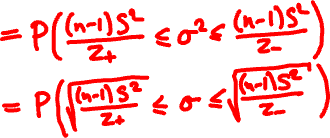 = P((n-1)S²/Z₊ ≤ σ² ≤ (n-1)S²/Z₋)
= P(√((n-1)S²/Z₊) ≤ σ ≤ √((n-1)S²/Z₋))